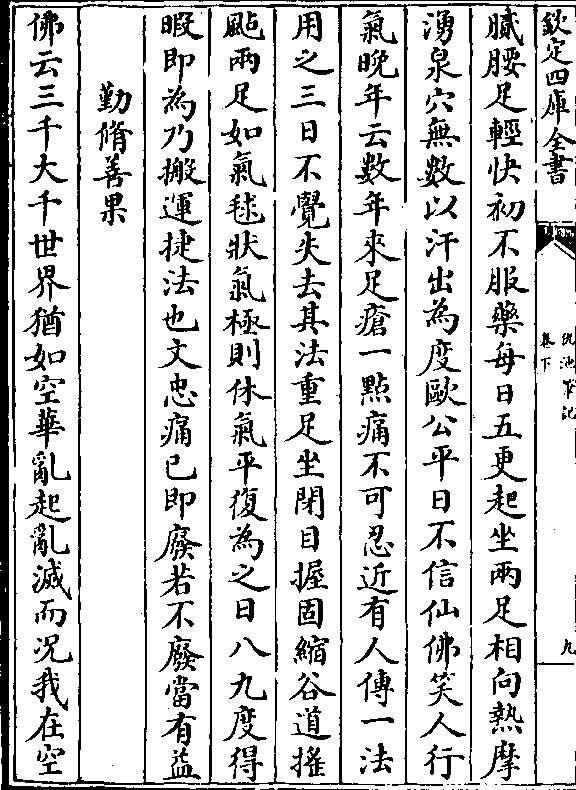 欽定四庫全書
仇池筆記
卷下
九
膩腰足輕快初不服藥每日五更起坐兩足相向熱摩
湧泉穴無數以汗出為度歐公平日不信仙佛笑人行
氣晚年云數年來足瘡一點痛不可忍近有人傳一法
用之三日不覺失去其法重足坐閉目握固縮谷道搖
颭兩足如氣毬狀氣極則休氣平復為之日八九度得
暇即為乃搬運捷法也文忠痛已即廢若不廢當有益
勤脩善果
佛云三千大千世界猶如空華亂起亂滅而况我在空